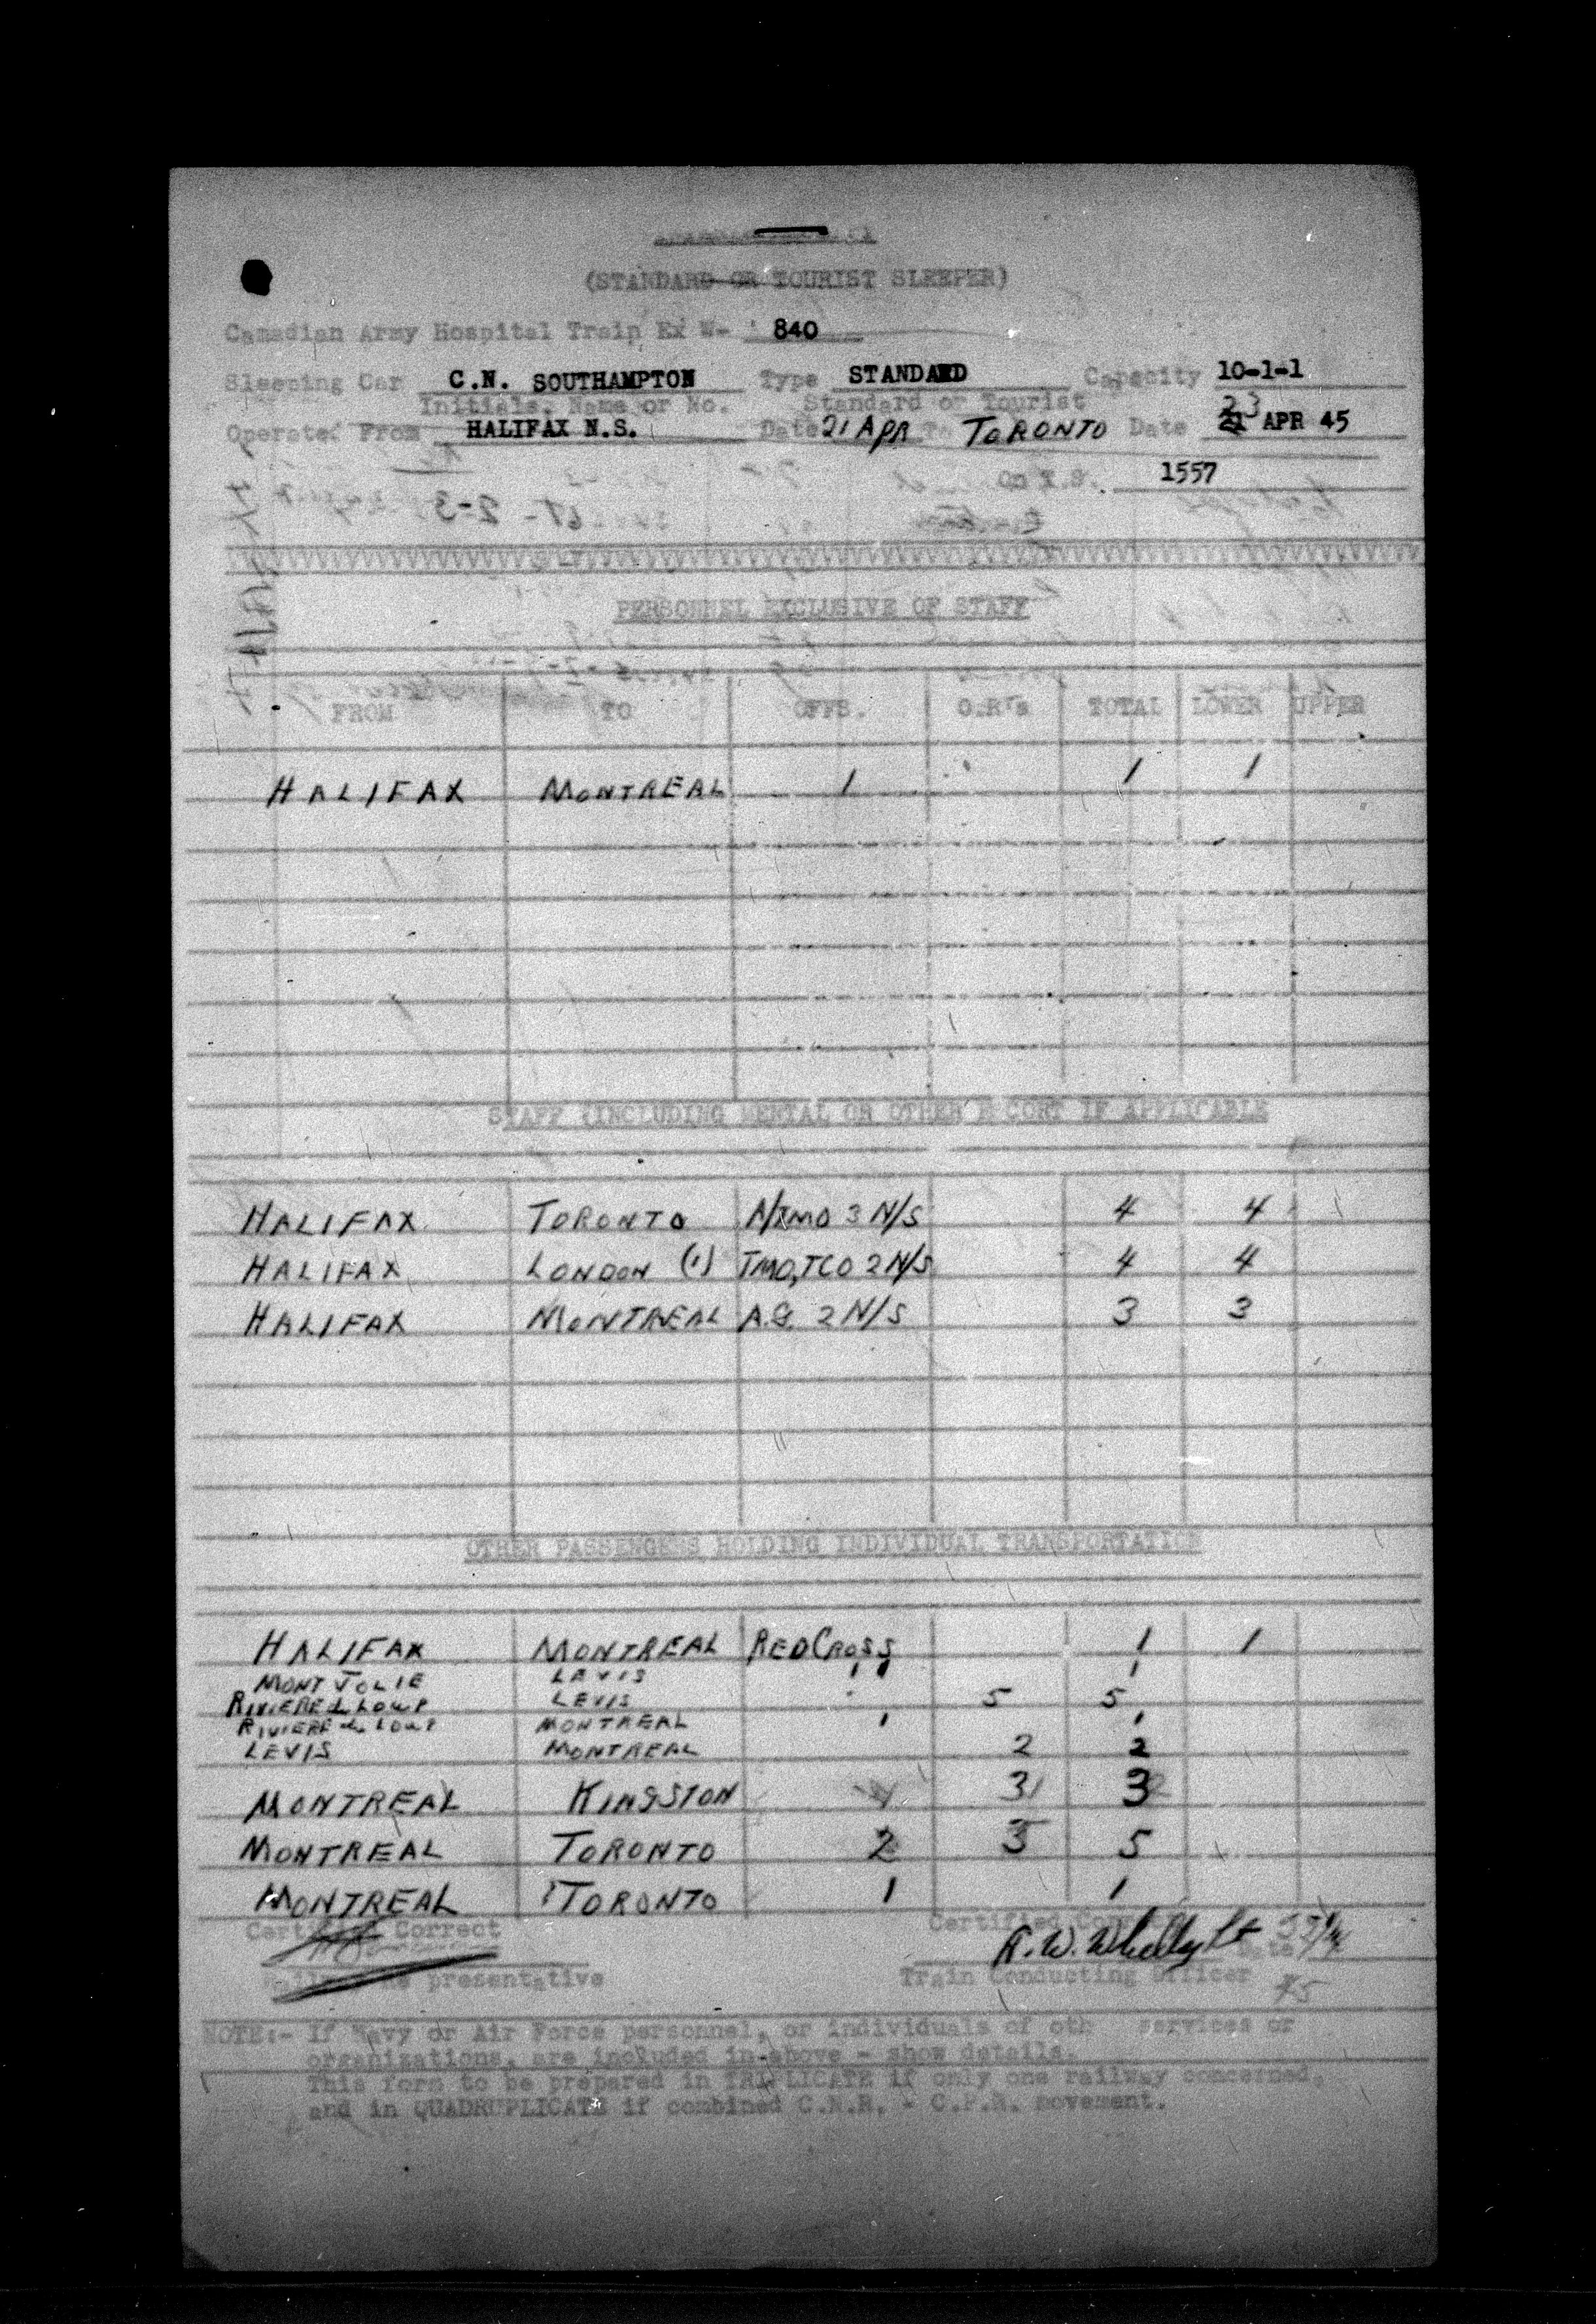 (STANDARD OR TOURIST SLEEPER)
Canadian Army Hospital Train Ex W- 840
Sleeping Car C.N. SOUTHAMPTON Type STANDARD Capacity 10-1-1
Initials, Name or No. Standard or Tourist
Operated From HALIFAX N.S. Date 21 APR To TORONTO Date 23 APR 45
On T.S. 1557
PERSONNEL EXCLUSIVE OF STAFF
FROM TO OFFS. O.R's TOTAL LOWER UPPER
HALIFAX MONTREAL 1 1 1
STAFF (INCLUDING MENTAL OR OTHER ESCORT IF APPLICABLE
HALIFAX TORONTO A/TMO 3 N/S 4 4
HALIFAX LONDON (1) TMO, TCO 2 N/S 4 4
HALIFAX MONTREAL A.G. 2 N/S 3 3
OTHER PASSENGERS HOLDING INDIVIDUAL TRANSPORTATION
HALIFAX MONTREAL RED CROSS 1 1
MONT JOLIE LEVIS 1 1
RIVIERE du LOUP LEVIS 5 5
RIVIERE du LOUP MONTREAL 1 1
LEVIS MONTREAL 2 2
MONTREAL KINGSTON 3 3
MONTREAL TORONTO 2 3 5
MONTREAL TORONTO 1 1
Certified Correct Certified Correct
R.W. Lt
Railway Representative Train Conducting Officer Date 45
NOTE:- If Navy or Air Force personnel, or individuals of oth services or
organizations, are included in above - show details.
This form to be prepared in TRIPLICATE if only one railway concerned,
and in QUADRUPLICATE if combined C.N.R. - C.P.R. movement.